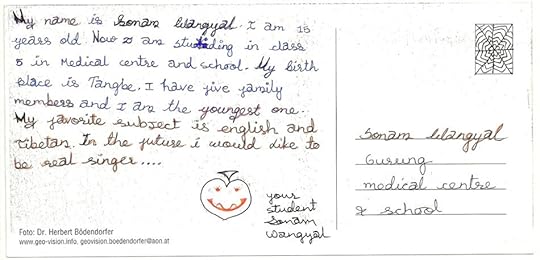 My name is Sonam Wangyal. I am 15
years old. Now I am studiding in class
5 in Medical centre and school. My birth
place is Tangbe. I have five family
members and I am the youngest one.
My favorite subject is english and
Tibetan. In the future i would like to
be real singer....
your
student
Sonam
Wangyal
Sonam Wangyal
Gurung
medical centre
& school
Foto: Dr. Herbert Bödendorfer
www.geo-vision.info, geovision.boedendorfer@aon.at